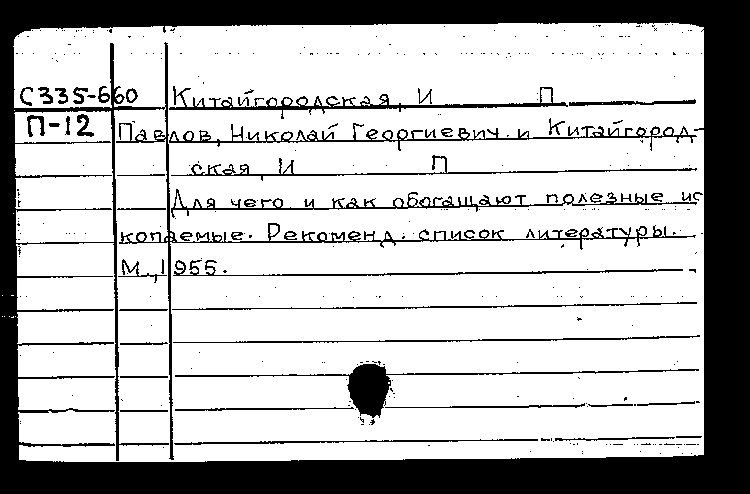 С335-660 Китайгородская, И П
П-12 Павлов, Николай Георгиевич и Китайгород-
ская, И П
Для чего и как обогащают полезные ис
копаемые. Рекоменд. список литературы.
М., 1955.